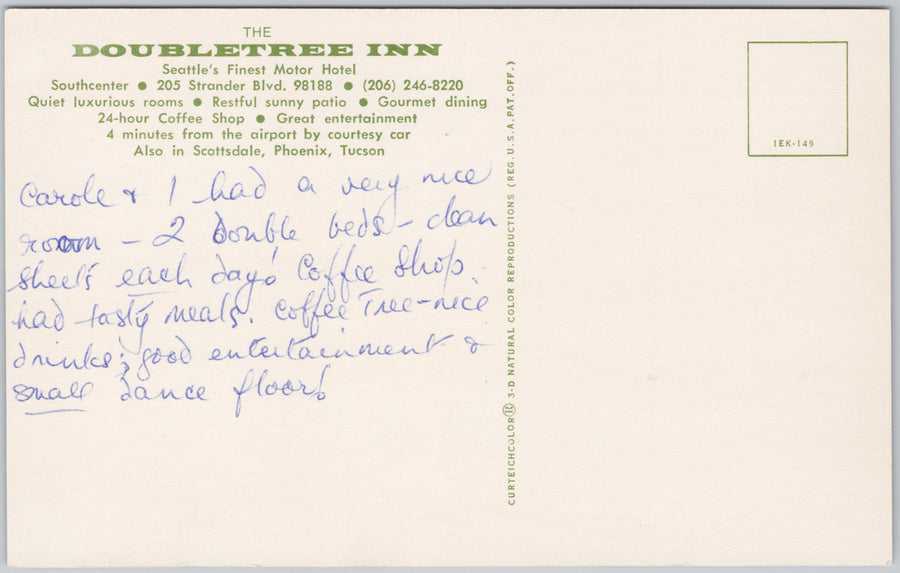 THE
DOUBLETREE INN
Seattle's Finest Motor Hotel
Southcenter ● 205 Strander Blvd. 98188 ● (206) 246-8220
Quiet luxurious rooms ● Restful sunny patio ● Gourmet dining
24-hour Coffee Shop ● Great entertainment
4 minutes from the airport by courtesy car
Also in Scottsdale, Phoenix, Tucson
Carole & I had a very nice
room - 2 double beds - clean
sheets each day! Coffee Shop
had tasty meals. Coffee Tree-nice
drinks; good entertainment &
small dance floor!
CURTEICHCOLOR® 3-D NATURAL COLOR REPRODUCTIONS (REG. U.S.A. PAT. OFF.)
1EK-149